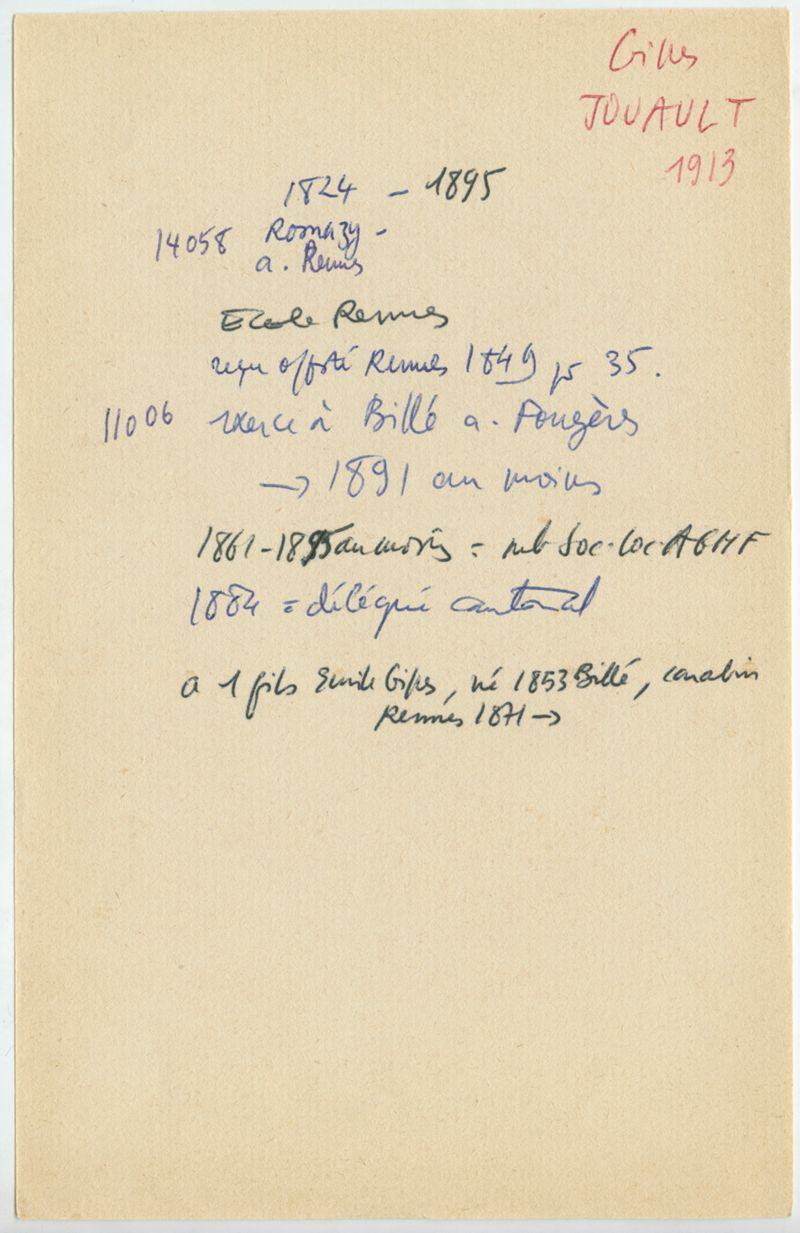 Gilles
JOUAULT
1913
1824 - 1895
14058 Romazy -
a. Rennes
Ecole Rennes
reçu offsté Rennes 1849 ps 35.
11006 exerce à Billé a. Fougères
→ 1891 au moins
1861-1895 au moins = mb Soc. loc. AGMF
1884 = délégué cantonal
a 1 fils Emile Gilles, né 1853 Billé, carabin
Rennes 1871 →